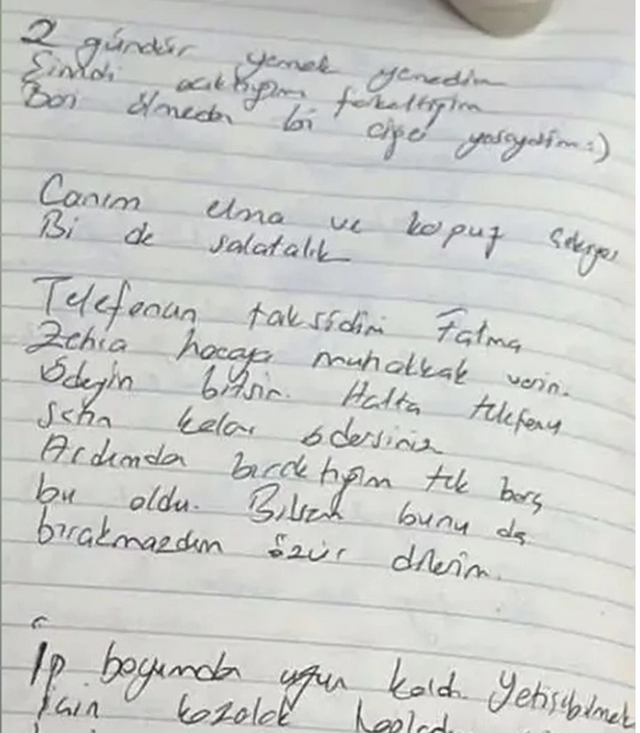 2 gündür yemek yemedim
Şimdi acıktığım farkettiğim
Ben ölmeden bi yaşıyodum :)
Canım elma ve karpuz çekiyor
Bi de salatalık
Telefonun taksidini Fatma
Zehra hocaya muhakkak verin.
Ödeyin bitsin. Hatta telefonu
satın kalan ödersiniz
Ardımda bıraktığım tek borç
bu oldu. Bilsem bunu da
bırakmazdım özür dilerim.
İp boyumdan uzun kaldı. Yetişebilmek
için